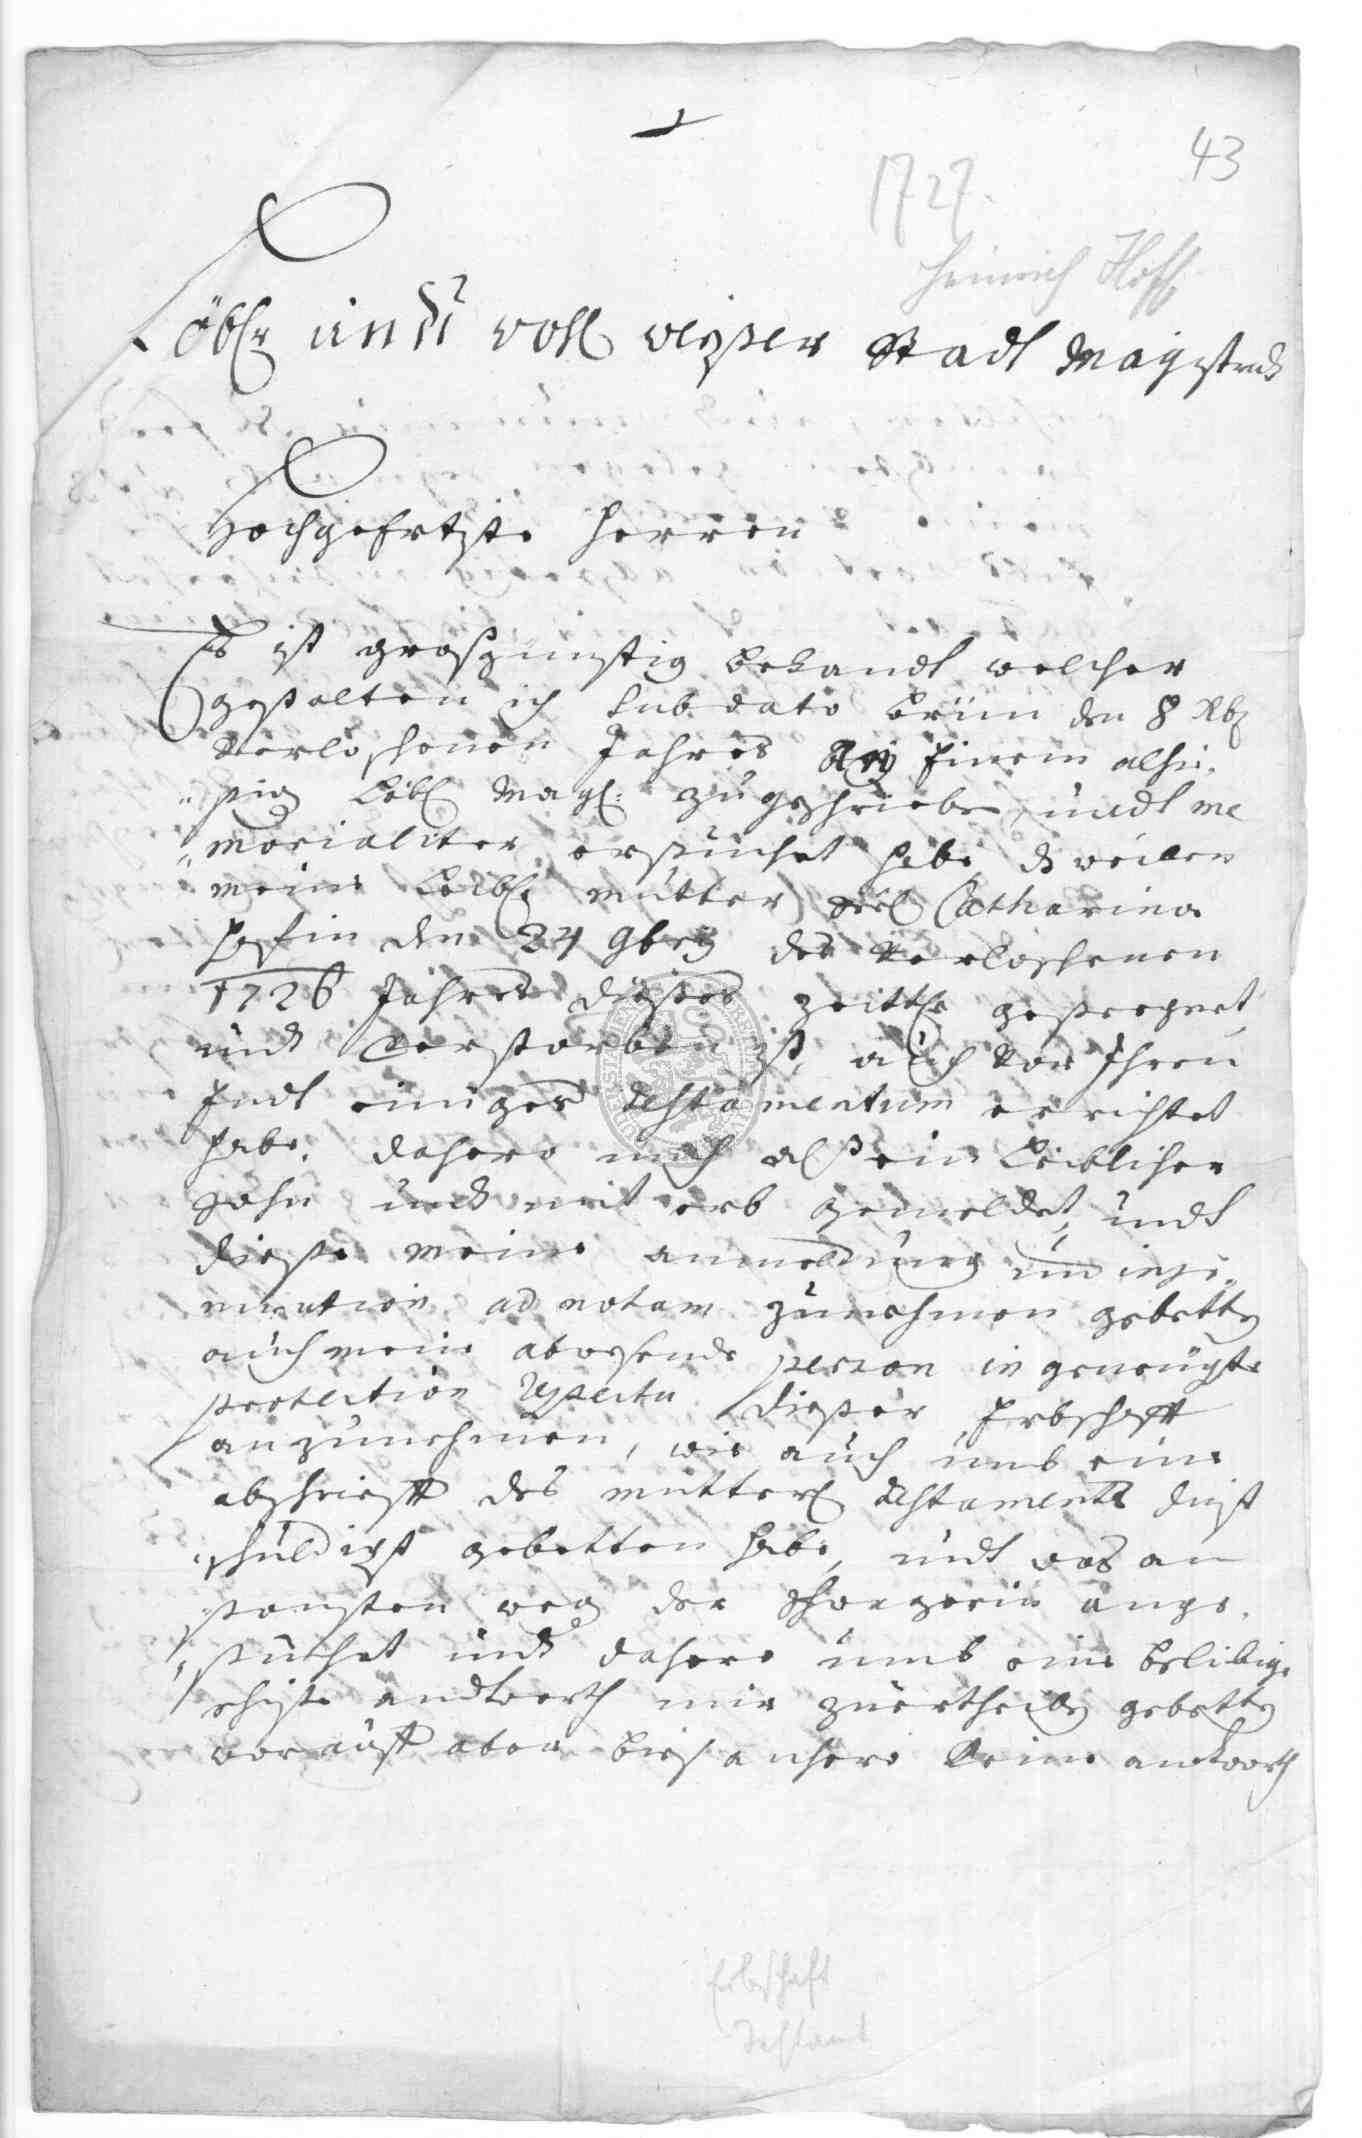 43
1727.
Heinrich Hoff
Löbl und wohl weyßer Stadt Magistrat
Hochgeehrtiste Herren
Es ist großgünstig bekandt welcher
gestalten ich sub dato Brünn den 8 Xbr
verloschenen Jahres Einem alhie-
sig Löbl Magl: zugeschrieben, undt me
morialiter ersuchet habe, d weillen
meine Leibl: mutter Seel Catharina
Hoffin den 24 9bris des verloschenen
1726 Jahres dieses zeittliche gesegnet,
und verstorben ist, auch vor Ihren
Endt einiges Testamentum errichtet
habe, dahero mich alß ein Leiblicher
Sohn und mit erb gemeldet, undt
dieße meine anmeldung und insi-
nuation ad notam zunehmen gebetten
auch mein abwesende person in geneigte
protection respectu dießer Erbschafft
anzunehmen, wie auch umb eine
abschriefft des mütterl Testaments dienst
schuldigst gebetten habe, undt was an
sonsten weg der ange-
suchet und dahero umb eine beliebige
schiste andtworth mir zuertheillen gebetten
worauff aber bieß anhero keine antworth
Erbschaft
Testam